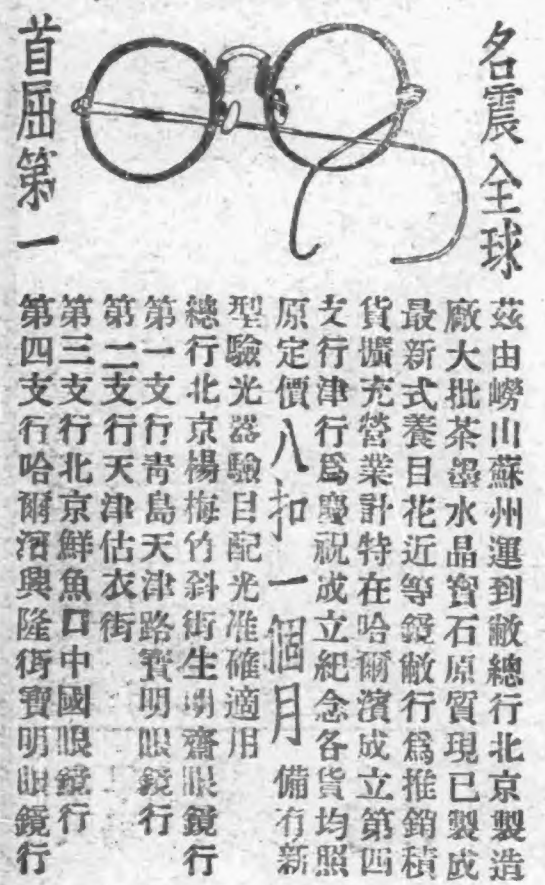 名震全球
首屈第一
茲由嶗山蘇州運到敝總行北京製造
廠大批茶墨水晶寶石原質現已製成
最新式養目花近等鏡敝行爲推銷積
貨擴充營業計特在哈爾濱成立第四
支行津行爲慶祝成立紀念各貨均照
原定價八扣一個月備有新
型驗光器驗目配光准確適用
總行北京楊梅竹斜街生明齋眼鏡行
第一支行靑島天津路寶明眼鏡行
第二支行天津估衣街
第三支行北京鮮魚口中國眼鏡行
第四支行哈爾濱興隆街寶明眼鏡行